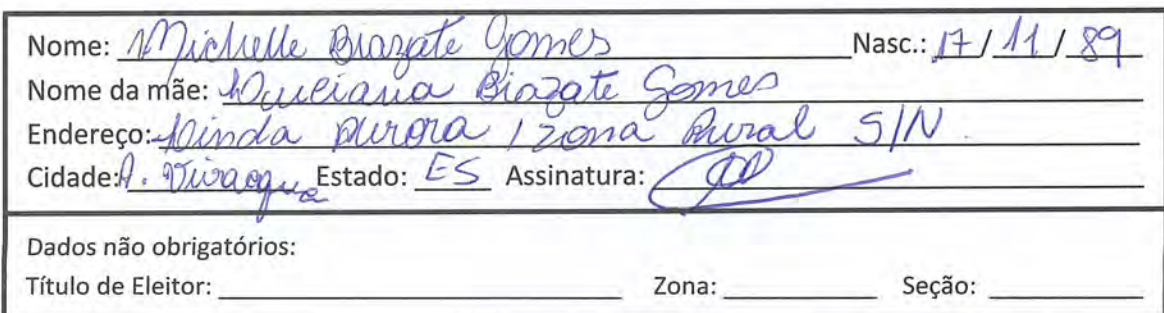 Nome: Michelle Biazate Gomes Nasc.: 17/11/89
Nome da mãe: Luciana Biazate Gomes
Endereço: Linda Aurora / zona Rural S/N
Cidade: A. Vivacqua Estado: ES Assinatura:
Dados não obrigatórios:
Título de Eleitor: Zona: Seção: